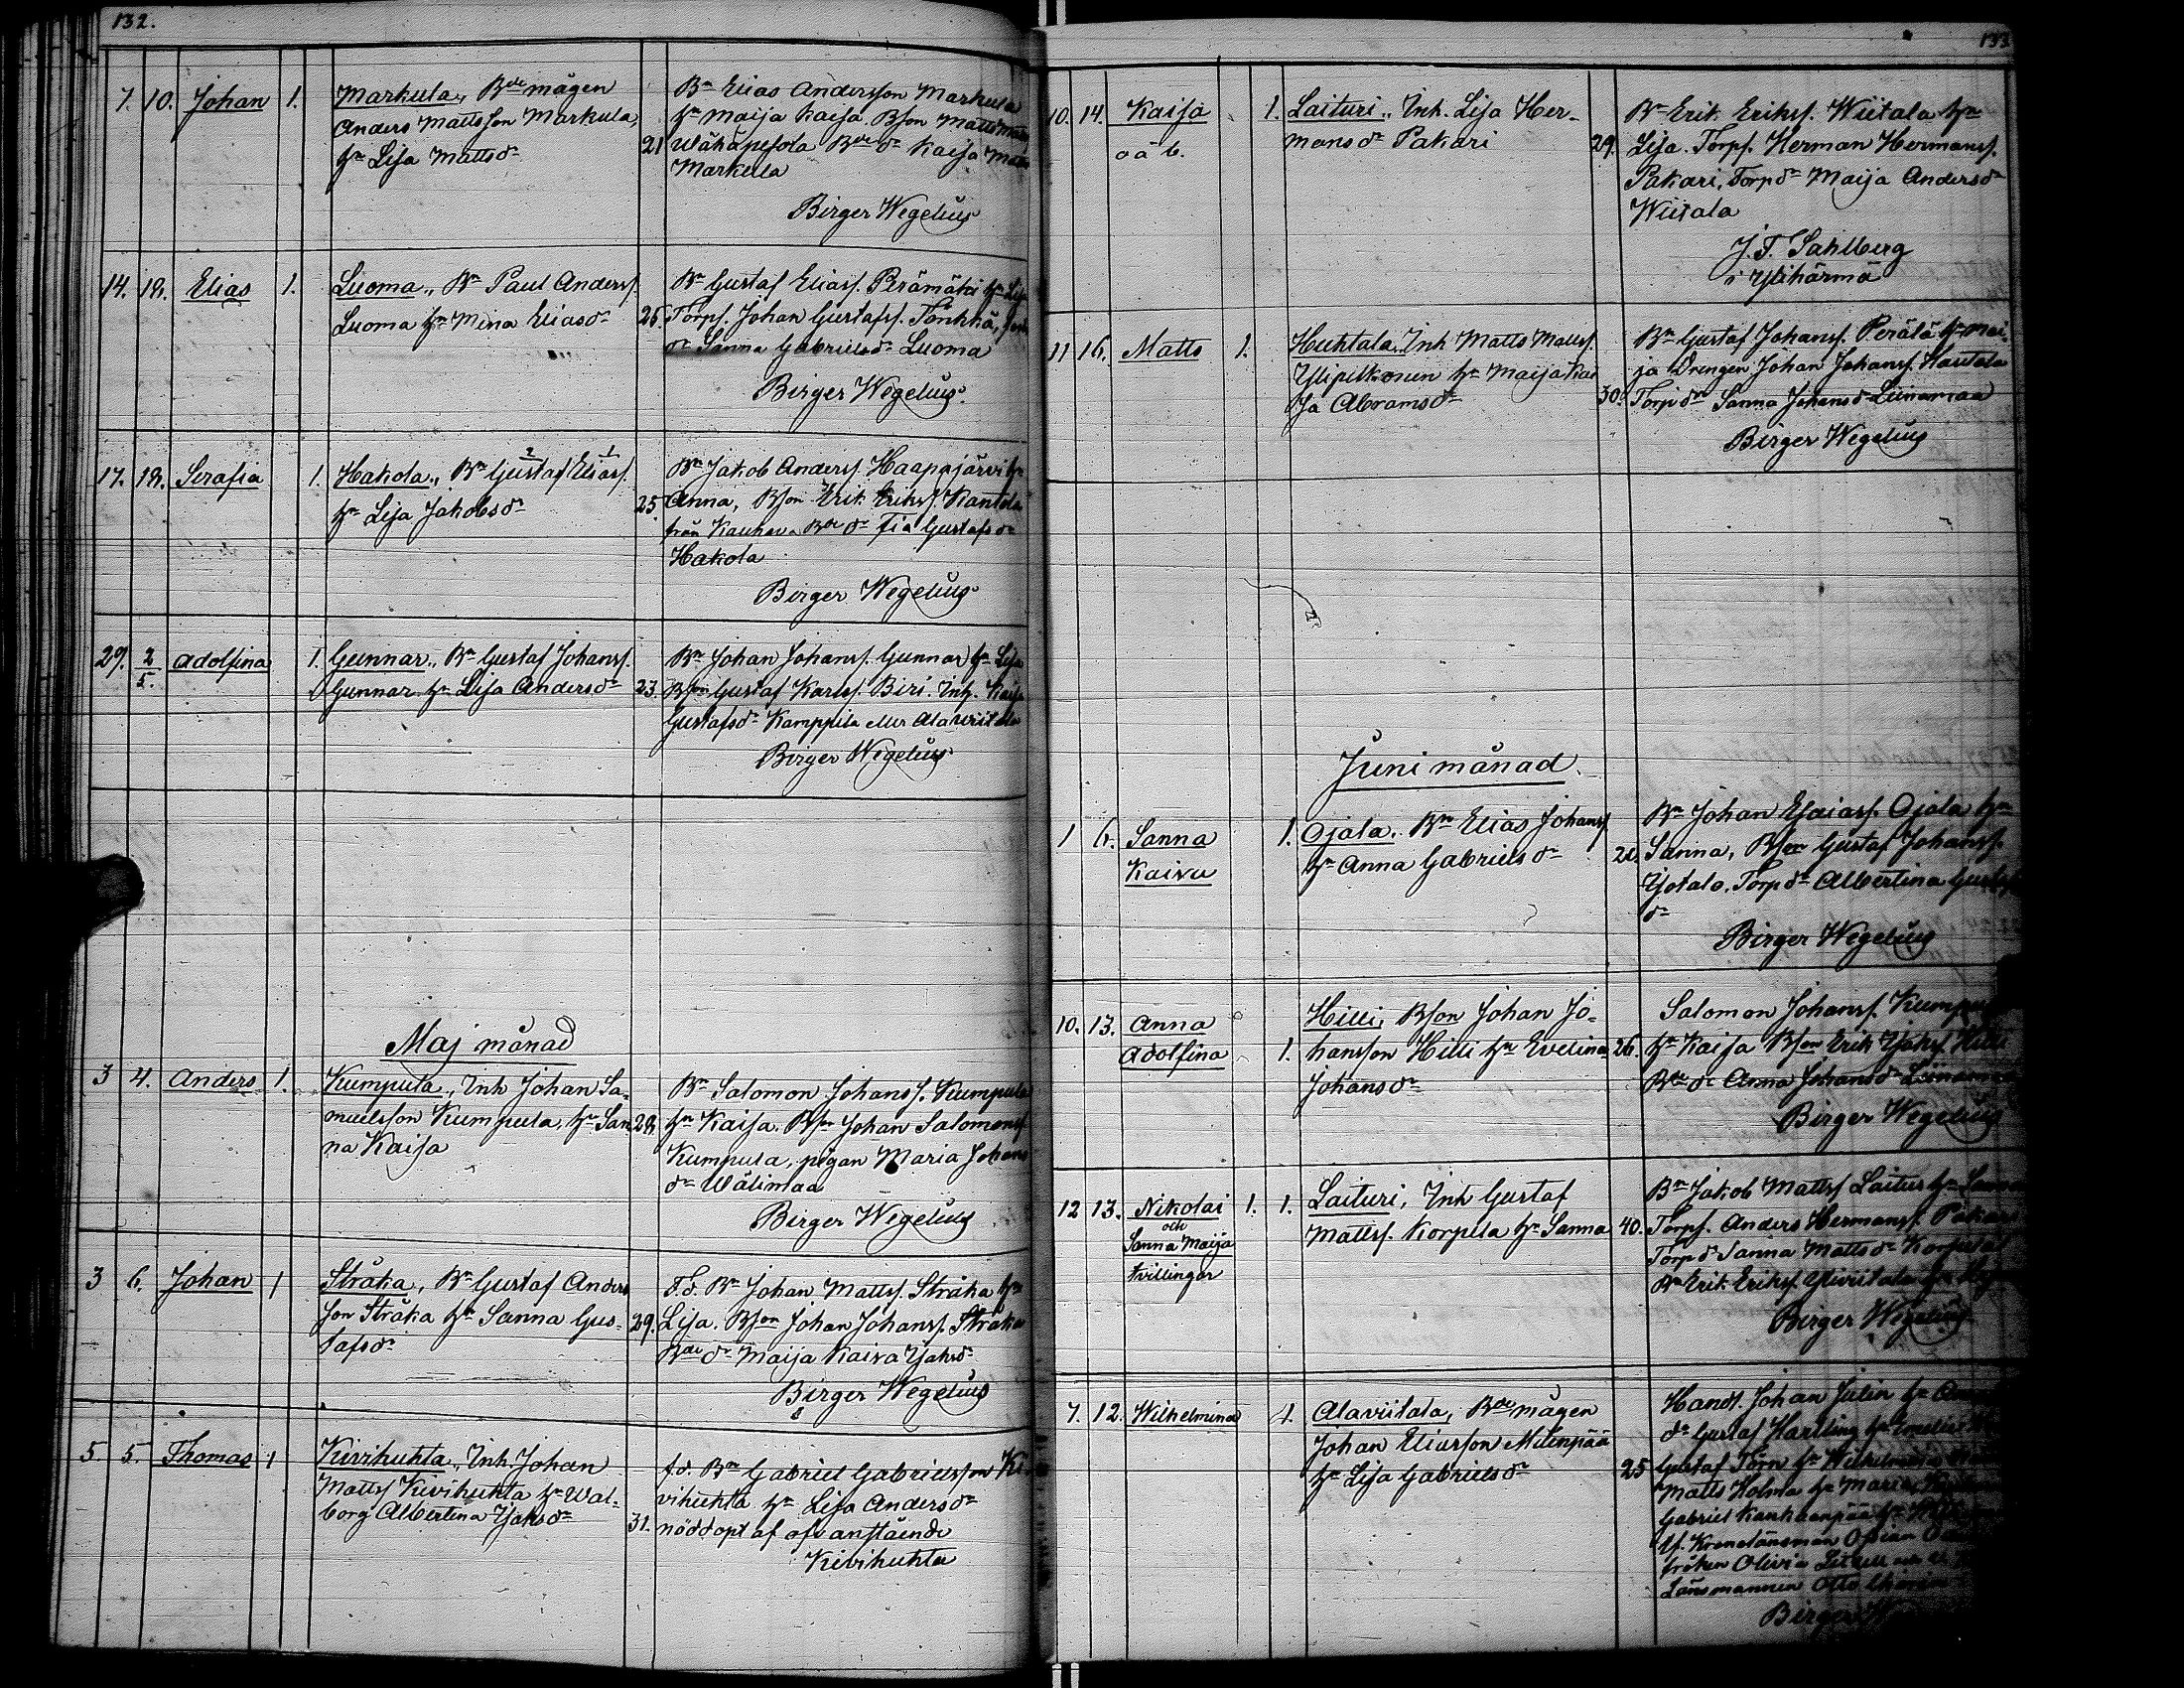 132.
7. 10. Johan 1. Markula, Bde mågen
Anders Mattsson Markula,
hu Lisa Mattsdr 21
Bn Elias Andersson Markula
hu Maija Kaisa. Bson Matts
Wähäpesola Bdedr Kaisa Matts
Markula
Birger Wegelius
14. 18. Elias 1. Luoma, Bn Paul Anderss.
Luoma hu Mina Eliasdr 26.
Bn Gustaf Eliass. Perämäki hu Lisa
Torps. Johan Gustafss. Tönkkä,
dr Sanna Gabrielsdr Luoma
Birger Wegelius
17. 18. Serafia 1. Hakola, Bn Gustaf Eliass.
hu Lisa Jakobsdr 25.
Bn Jakob Anderss. Haapojärvi hu
Anna, Bson Erik Erikss. Kantola
från Kauhava Bdedr Fia Gustafsdr
Hakola
Birger Wegelius
29. 2/5. Adolfina 1. Gunnar, Bn Gustaf Johanss.
Gunnar hu Lisa Andersdr 23.
Bn Johan Johanss. Gunnar hu Lisa
Bson Gustaf Karlss. Biri. Inh. Kaisa
Gustafsdr Kamppila eller Alawiitala
Birger Wegelius
Maj månad
3 4. Anders 1. Kumpula, Inh Johan Sa-
muelsson Kumpula, hu San-
na Kaisa 28.
Bn Salomon Johanss. Kumpula
hu Kaisa. Bson Johan Salomonss
Kumpula, pigan Maria Johans
dr Wälimaa
Birger Wegelius
3 6. Johan 1 Stråka, Bn Gustaf Anders
son Stråka hu Sanna Gus-
tafsdr 29.
F.d. Bn Johan Mattss. Stråka hu
Lisa. Bson Johan Johanss. Stråka
Bdedr Maija Kaisa Isaksdr
Birger Wegelius
5. 5. Thomas 1 Kivihuhta, Inh. Johan
Mattss Kivihuhta hu Wal-
borg Albertina Isaksdr 31.
f.d. Bn Gabriel Gabrielsson Ki-
vihuhta hu Lisa Andersdr
nöddöpt af ofvanstående
Kivihuhta
133
10. 14. Kaisa 1. Laituri, Inh. Lisa Her-
oä b. mansdr Pakari 29.
Bn Erik Erikss. Wiitala hu
Lisa. Torps. Herman Hermanss.
Pakari, Torpdr Maija Andersdr
Wiitala
J. F. Sahlberg
i Ylihärmä
11 16. Matts 1. Huhtala Inh Matts Matss.
Ylipelkonen hu Maija Kai
sa Abramsdr 30.
Bn Gustaf Johanss. Perälä hu Mai-
ja Drengen Johan Johanss. Hautala
Torpdr Sanna Johansdr Liinamaa
Birger Wegelius
Juni månad
1 6. Sanna 1. Ojala. Bn Elias Johanss
Kaisa hu Anna Gabrielsdr
Bn Johan Esaiass. Ojala hu
Sanna, Bson Gustaf Johanss.
Torpdr Albertina
dr
Birger Wegelius
10. 13. Anna Hilli, Bson Johan Jo-
Adolfina 1. hansson Hilli hu Evelina 26.
Johansdr
Salomon Johanss. Kumpula
hu Kaisa Bson Erik Isakss Hilli
Bdedr Anna Johansdr
Birger Wegelius
12 13. Nikolai 1. 1. Laituri, Inh Gustaf
och
Sanna Maija Mattss. Korpela hu Sanna 40.
tvillingar
Bn Jakob Mattss Laituri hu Sanna
Torps. Anders Hermanss. Pakari
Torpdr Sanna Mattsdr Korpela
Bn Erik Erikss.
Birger Wegelius
7. 12. Wilhelmina 1. Alaviitala, Bde mågen
Johan Eliasson Mäenpää
hu Lisa Gabrielsdr 25
Handl. Johan Julin hu
do Gustaf Hartling hu
Gustaf Törn hu Wilhelmina
Matts Holma hu Maria
Gabriel Kankaanpää hu
tf. Kronolänsman
fröken Olivia
Länsmannen Otto
Birger